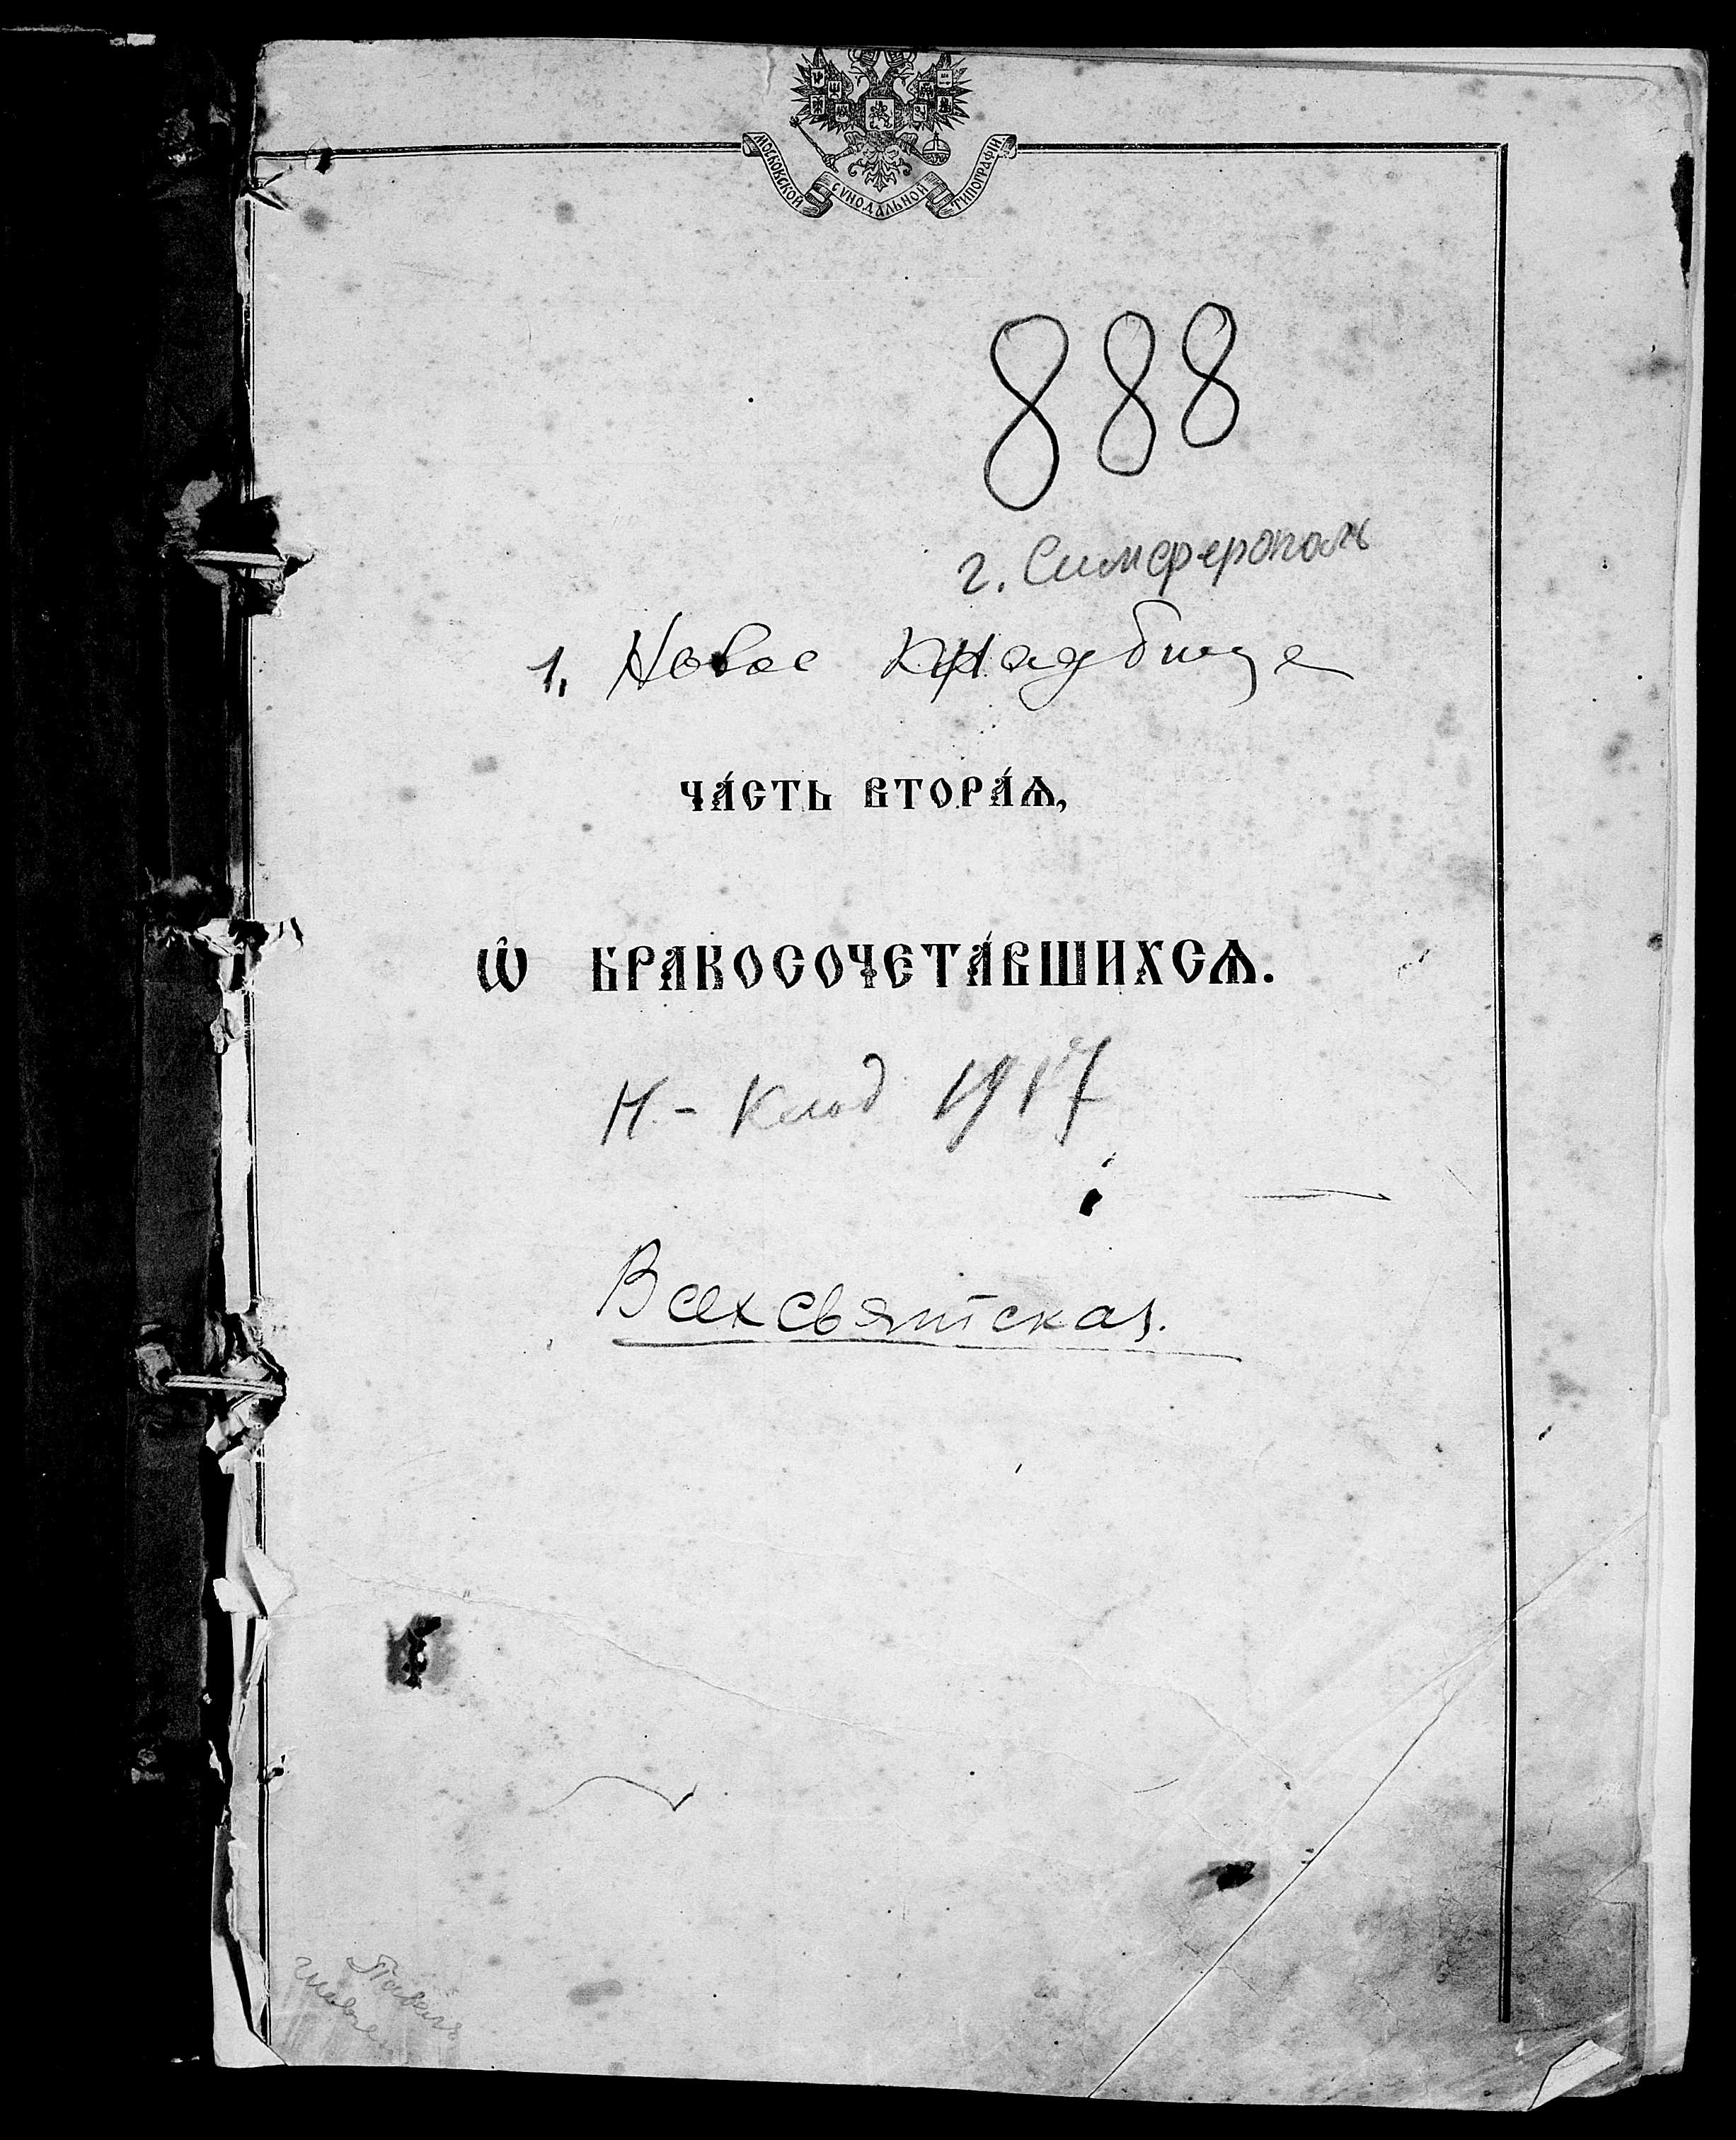 МОСКОВСКОЙ СѴНОДАЛЬНОЙ ТИПОГРАФІИ.
888
г. Симферополь
1. Новое Кладбище
ЧА́СТЬ ВТОРА́Ѧ,
Ѡ҆ БРАКОСОЧЕТА́ВШИХСѦ.
Н. - Клад 1917
Всехсвятская.
Павелъ